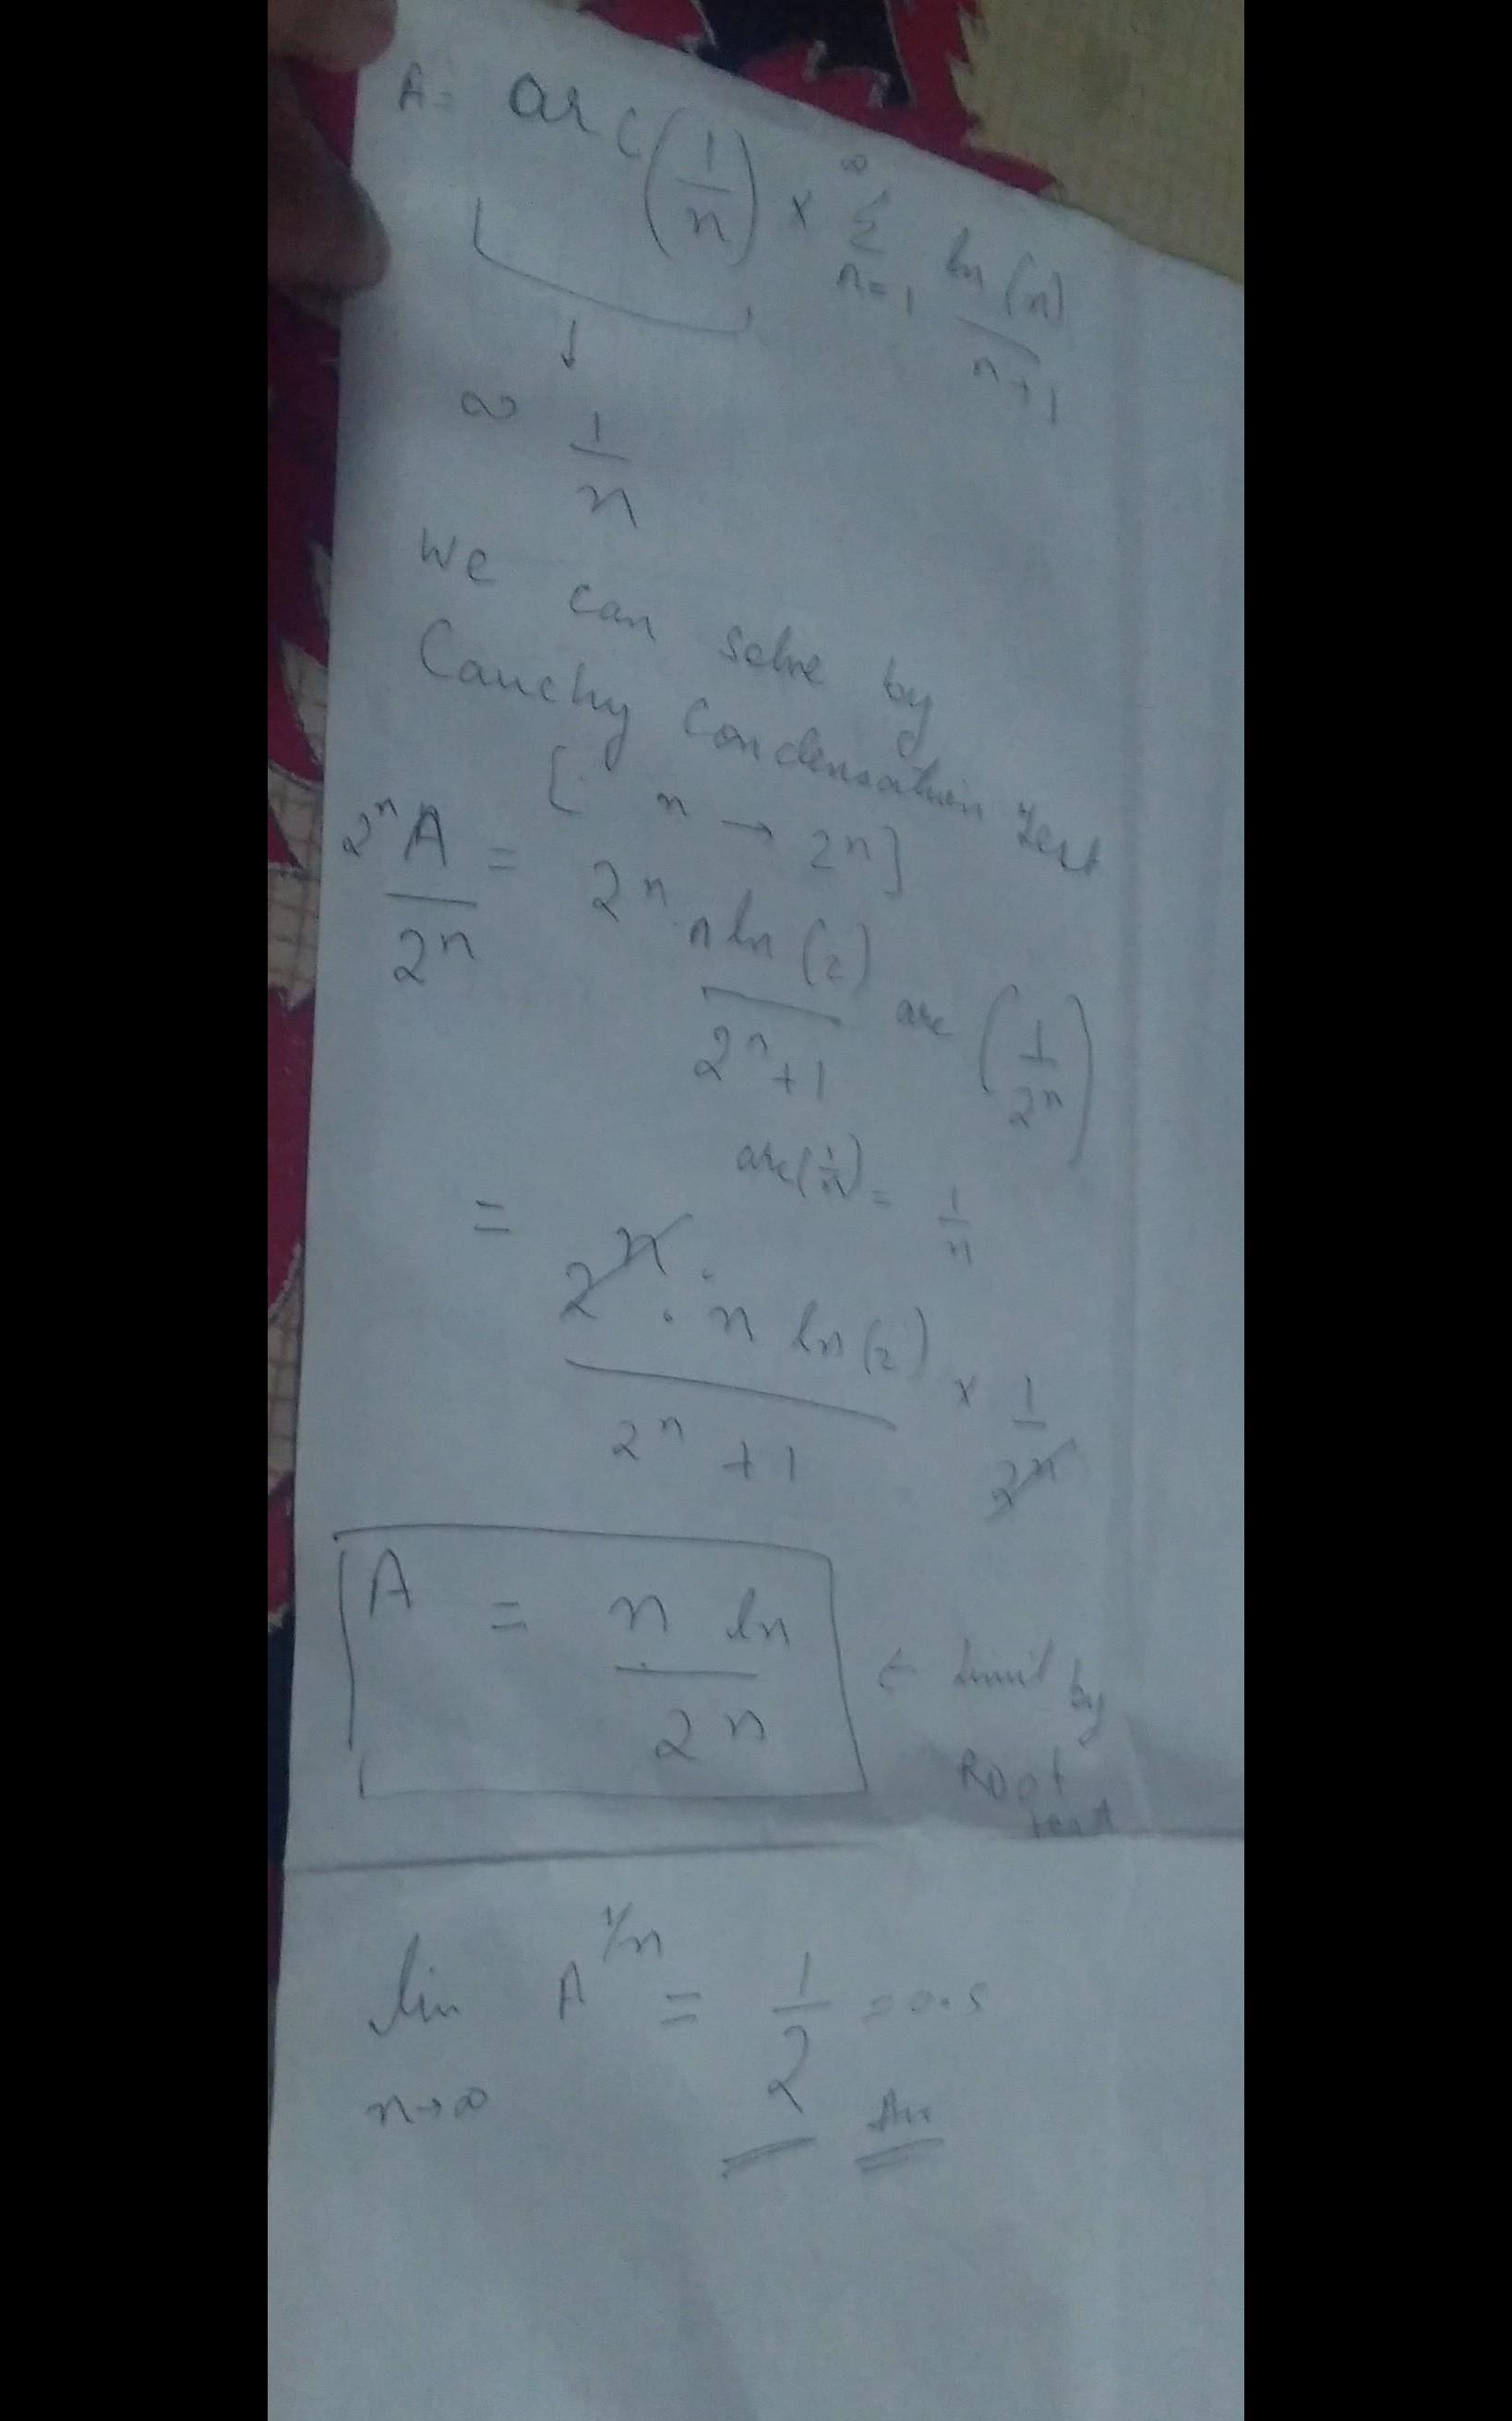 A = arc(1/n) × ∞Σn=1 ln(n)/n+1
↓
∞ 1/n
We can solve by
Cauchy Condensation Test
[ n → 2^n ]
2^n A/2^n = 2^n · n ln(2)/2^n+1 arc(1/2^n)
arc(1/n) = 1/n
= 2^n · n ln(2)/2^n+1 × 1/2^n
A = n ln/2^n ← limit by
Root
test
lim n→∞ A^1/n = 1/2 = 0.5
Ans